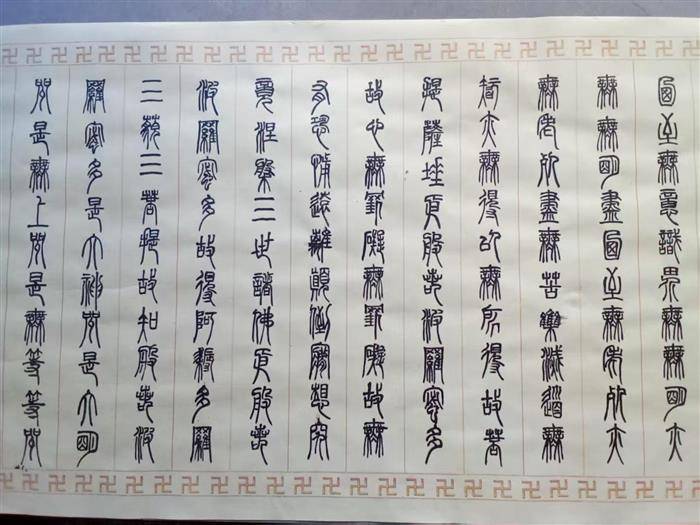 乃至無意識界無無明亦
無無明盡乃至無老死亦
無老死盡無苦集滅道無
智亦無得以無所得故菩
提薩埵依般若波羅蜜多
故心無罣礙無罣礙故無
有恐怖遠離顛倒夢想究
竟涅槃三世諸佛依般若
波羅蜜多故得阿耨多羅
三藐三菩提故知般若波
羅蜜多是大神咒是大明
咒是無上咒是無等等咒